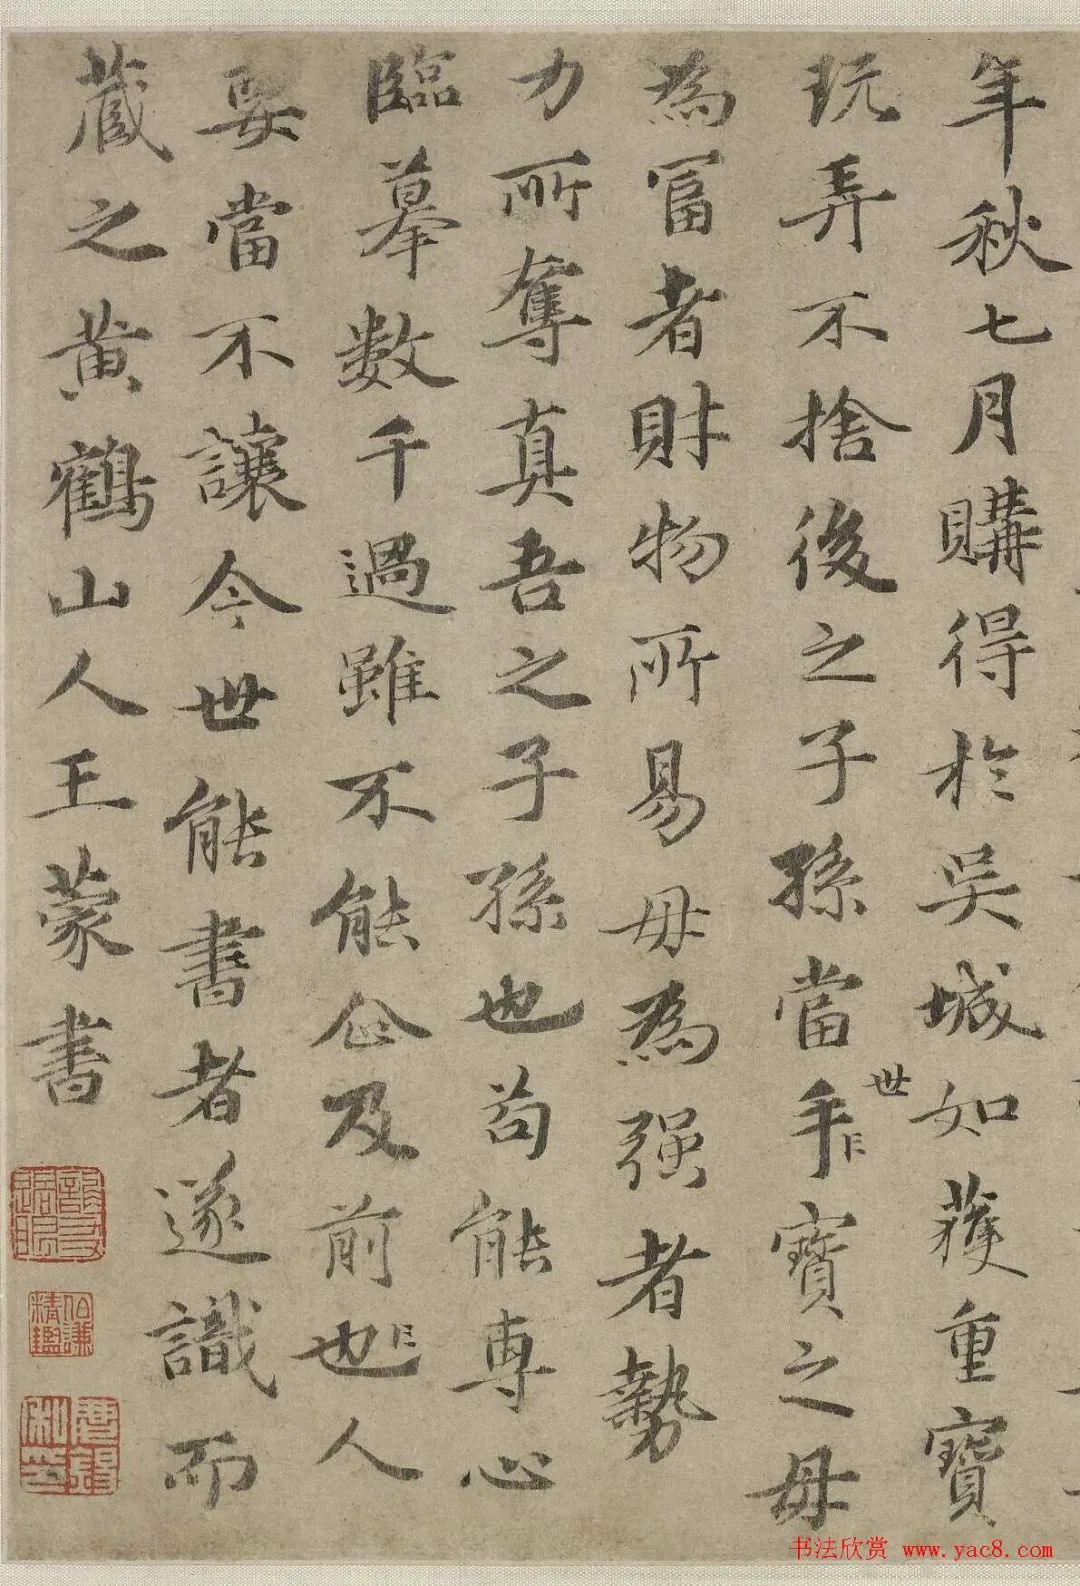 年秋七月購得於吳城如獲重寶
玩弄不捨後之子孫當手寶之毋
世
為富者財物所易毋為强者勢
力所奪真吾之子孫也苟能專心
臨摹數千過雖不能企及前也人
要當不讓今世能書者遂識而
藏之黄鶴山人王蒙書
伯謙精鑑
书法欣赏 www.yac8.com